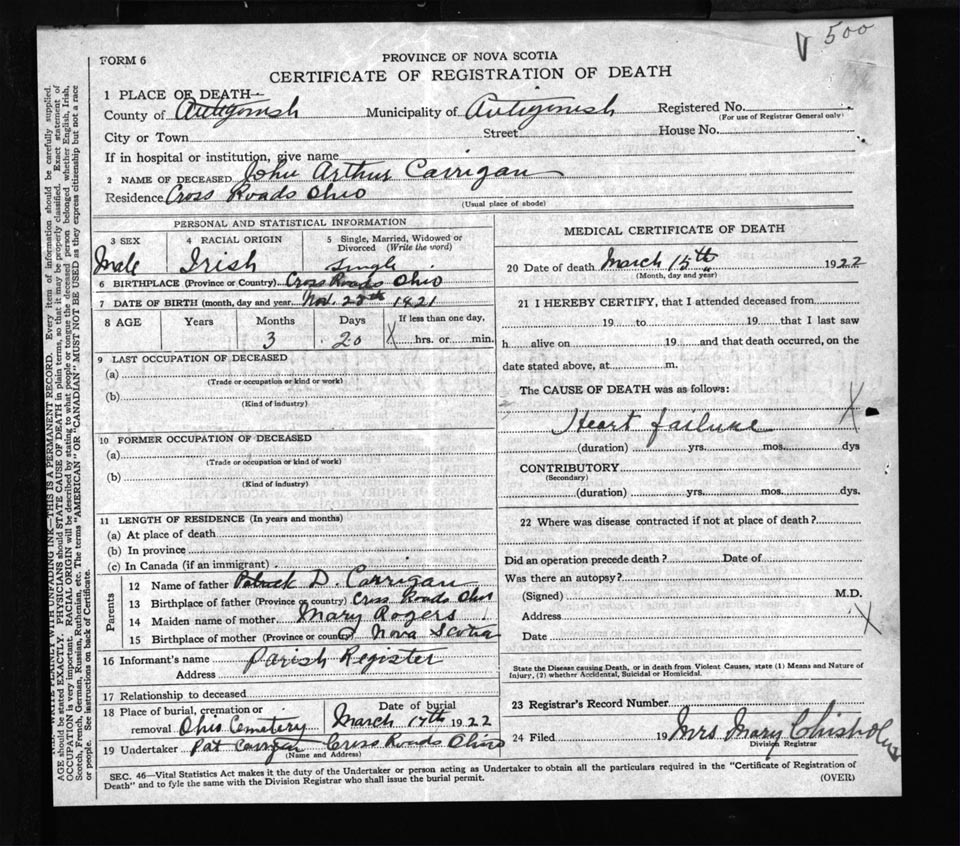 V 500
FORM 6
PROVINCE OF NOVA SCOTIA
CERTIFICATE OF REGISTRATION OF DEATH
1 PLACE OF DEATH
County of Antigonish Municipality of Antigonish Registered No.
(For use of Registrar General only)
City or Town Street House No.
If in hospital or institution, give name
2 NAME OF DECEASED John Arthur Carrigan
Residence Cross Roads Ohio
(Usual place of abode)
PERSONAL AND STATISTICAL INFORMATION
3 SEX 4 RACIAL ORIGIN 5 Single, Married, Widowed or Divorced (Write the word)
Male Irish Single
6 BIRTHPLACE (Province or Country) Cross Roads Ohio
7 DATE OF BIRTH (month, day and year) Nov. 25th 1921
8 AGE Years Months Days If less than one day,
3 20 X hrs. or min.
9 LAST OCCUPATION OF DECEASED
(a)
(Trade or occupation or kind or work)
(b)
(Kind of industry)
10 FORMER OCCUPATION OF DECEASED
(a)
(Trade or occupation or kind of work)
(b)
(Kind of industry)
11 LENGTH OF RESIDENCE (In years and months)
(a) At place of death
(b) In province
(c) In Canada (if an immigrant)
Parents
12 Name of father Patrick D. Carrigan
13 Birthplace of father (Province or country) Cross Roads Ohio
14 Maiden name of mother Mary Rogers
15 Birthplace of mother (Province or country) Nova Scotia
16 Informant's name Parish Register
Address
17 Relationship to deceased
18 Place of burial, cremation or removal Ohio Cemetery Date of burial March 17th 1922
19 Undertaker Pat Carrigan Cross Roads Ohio
(Name and Address)
MEDICAL CERTIFICATE OF DEATH
20 Date of death March 15th 1922
(Month, day and year)
21 I HEREBY CERTIFY, that I attended deceased from
19 to 19 that I last saw
h alive on 19 and that death occurred, on the
date stated above, at m.
The CAUSE OF DEATH was as follows: X
Heart failure
(duration) yrs. mos. dys
CONTRIBUTORY
(Secondary)
(duration) yrs. mos. dys.
22 Where was disease contracted if not at place of death?
Did an operation precede death? Date of
Was there an autopsy?
(Signed) M.D.
Address X
Date
State the Disease causing Death, or in death from Violent Causes, state (1) Means and Nature of
Injury, (2) whether Accidental, Suicidal or Homicidal.
23 Registrar's Record Number
24 Filed 19 Mrs Mary Chisholm
Division Registrar
SEC. 46—Vital Statistics Act makes it the duty of the Undertaker or person acting as Undertaker to obtain all the particulars required in the "Certificate of Registration of
Death" and to fyle the same with the Division Registrar who shall issue the burial permit. (OVER)
WRITE PLAINLY WITH UNFADING INK—THIS IS A PERMANENT RECORD. Every item of information should be carefully supplied.
AGE should be stated EXACTLY. PHYSICIANS should STATE CAUSE OF DEATH in plain terms, so that it may be properly classified. Exact statement of
OCCUPATION is very important. RACIAL ORIGIN will be described by stating to what people or tongue the deceased person belonged whether English, Irish,
Scotch, French, German, Russian, Ruthenian, etc. The terms "AMERICAN" OR "CANADIAN" MUST NOT BE USED as they express citizenship but not a race
or people. See instructions on back of Certificate.